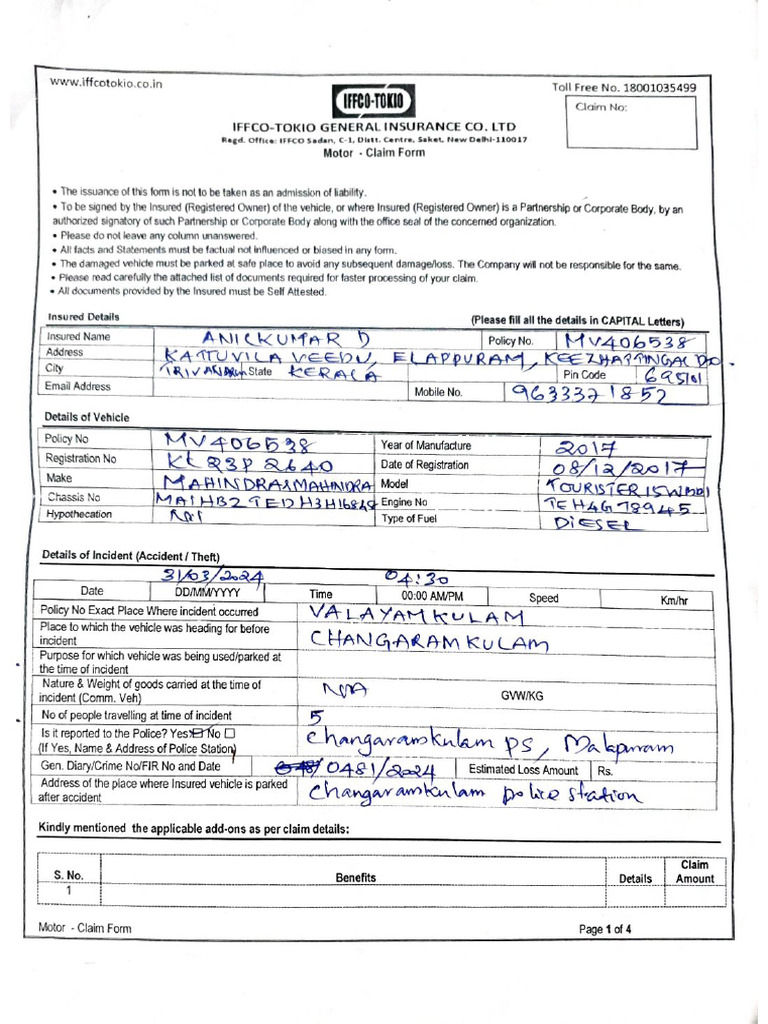 www.iffcotokio.co.in
Toll Free No. 18001035499
IFFCO-TOKIO
Claim No:
IFFCO-TOKIO GENERAL INSURANCE CO. LTD
Regd. Office: IFFCO Sadan, C-1, Distt. Centre, Saket, New Delhi-110017
Motor - Claim Form
• The issuance of this form is not to be taken as an admission of liability.
• To be signed by the Insured (Registered Owner) of the vehicle, or where Insured (Registered Owner) is a Partnership or Corporate Body, by an
authorized signatory of such Partnership or Corporate Body along with the office seal of the concerned organization.
• Please do not leave any column unanswered.
• All facts and Statements must be factual not influenced or biased in any form.
• The damaged vehicle must be parked at safe place to avoid any subsequent damage/loss. The Company will not be responsible for the same.
• Please read carefully the attached list of documents required for faster processing of your claim.
• All documents provided by the Insured must be Self Attested.
Insured Details (Please fill all the details in CAPITAL Letters)
Insured Name ANILKUMAR D Policy No. MV406538
Address KATTUVILA VEEDU, ELAPPURAM, KEEZHATTINGAL PO
City TRIVANDRUM State KERALA Pin Code 695101
Email Address Mobile No. 9633371852
Details of Vehicle
Policy No MV406538 Year of Manufacture 2017
Registration No KL23P 2640 Date of Registration 08/12/2017
Make MAHINDRA&MAHINDRA Model TOURISTER 15W
Chassis No Engine No TEH4G78945
Hypothecation Nil Type of Fuel DIESEL
Details of Incident (Accident / Theft)
31/03/2024 04:30
Date DD/MM/YYYY Time 00:00 AM/PM Speed Km/hr
Policy No Exact Place Where incident occurred VALAYAMKULAM
Place to which the vehicle was heading for before
incident CHANGARAMKULAM
Purpose for which vehicle was being used/parked at
the time of incident
Nature & Weight of goods carried at the time of
incident (Comm. Veh) N/A GVW/KG
No of people travelling at time of incident 5
Is it reported to the Police? Yes No
(If Yes, Name & Address of Police Station) Changaramkulam PS, Malapuram
Gen. Diary/Crime No/FIR No and Date 0481/2024 Estimated Loss Amount Rs.
Address of the place where Insured vehicle is parked
after accident Changaramkulam police station
Kindly mentioned the applicable add-ons as per claim details:
S. No. Benefits Details Claim Amount
1
Motor - Claim Form Page 1 of 4